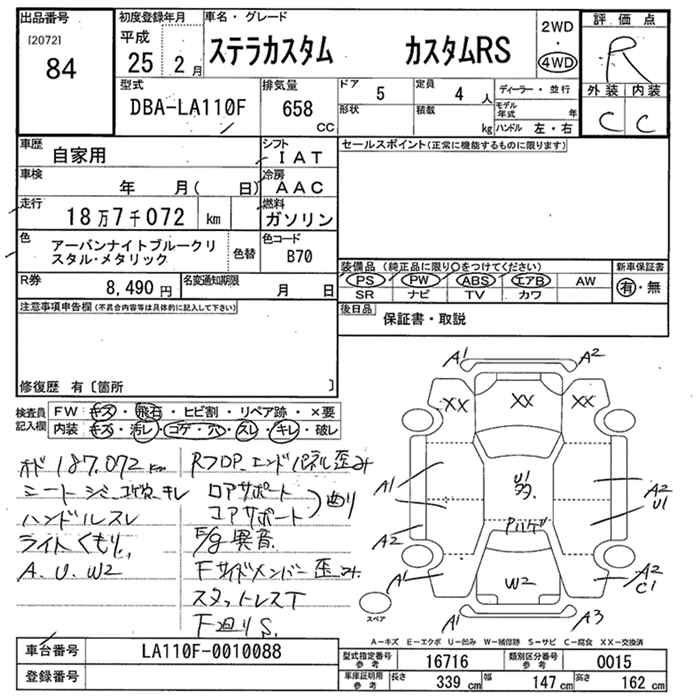 出品番号
[2072]
84
初度登録年月
平成
25 2 月
車名・グレード
ステラカスタム カスタムRS
2WD
・
4WD
評価点
R
外装 内装
C C
型式
DBA-LA110F
排気量
658
CC
ドア 5
形状
定員 4 人
積載 kg
ディーラー・並行
モデル年式 年
ハンドル 左・右
車歴
自家用
シフト
IAT
セールスポイント(正常に機能するものに限ります)
車検
年 月( 日)
冷房
AAC
走行
18万7千072 km
燃料
ガソリン
色
アーバンナイトブルークリ
スタル・メタリック
色替
色コード
B70
装備品(純正品に限り○をつけてください)
新車保証書
PS PW ABS エアB AW
有・無
SR ナビ TV カワ
R券
8,490 円
名変通知期限
月 日
後日品
保証書・取説
注意事項申告欄(不具合内容等は具体的に記入して下さい)
修復歴 有〔箇所 〕
検査員
記入欄
FW キズ・飛石・ヒビ割・リペア跡・×要
内装 キズ・汚レ・コゲ・穴・スレ・キレ・破レ
オド 187,072 km
シート シミ、コゲ穴、キレ
ハンドルスレ
ライトくもり
A.U.W2
RフロP.エンドパネル歪み
ロアサポート
コアサポート
曲り
E/g異音
Fサイドメンバー歪み
スタットレスT
F廻りS.
A1 A2
XX XX XX
A1
U1
A2
U1
A2
A1
W2
A2
C1
A1 A3
スペア
A-キズ E-エクボ U-凹み W-補修跡 S-サビ C-腐食 XX-交換済
車台番号
LA110F-0010088
登録番号
型式指定番号
参考
16716
類別区分番号
参考
0015
車庫証明用
参考
長さ 339 cm
幅 147 cm
高さ 162 cm